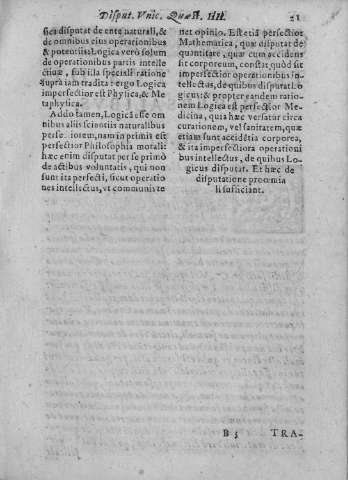 Disput. Vnic. Quæst. IIII. 21
sica disputat de ente naturali, &
de omnibus eius operationibus
& potentiis: Logica verò solum
de operationibus partis intelle
ctiuæ, sub illa speciali ratione
supra iam tradita: ergo Logica
imperfectior est Physica, & Me
taphysica.
Addo tamen, Logica esse om
nibus aliis scientiis naturalibus
perfectiorem, nam in primis est
perfectior Philosophia morali:
hæc enim disputat per se primò
de actibus voluntatis, qui non
sunt ita perfecti, sicut operatio
nes intellectus, vt communis te
net opinio. Est etiã perfectior
Mathematica, quæ disputat de
quantitate, quæ cum accidens
sit corporeum, constat, quòd sit
imperfectior operationibus in-
tellectus, de quibus disputat Lo
gicus: & propter eandem ratio-
nem Logica est perfectior Me-
dicina, quia hæc versatur circa
curationem, vel sanitatem, quæ
etiam sunt accidẽtia corporea,
& ita imperfectiora operationi
bus intellectus, de quibus Lo-
gicus disputat. Et hæc de
disputatione proœmia
li sufficiant.
B 3 TRA-